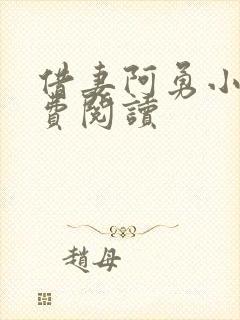 借妻阿勇小
費閱讀
趙母